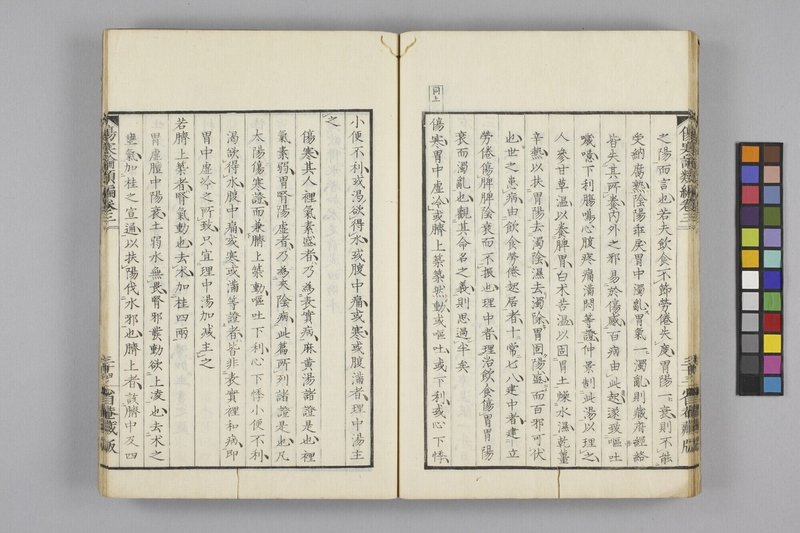 之陽而言也若夫飲食不節勞倦失度胃陽一衰則不能
矣納腐熟陰陽乖戾胃中濁亂胃氣一濁亂則臟腑經絡
皆失其所養內外之邪易於傷感百病由此起遂致嘔吐
噦噫下利腸鳴心腹疼痛滿悶等證仲景制此湯以理之
人參甘草溫以養脾胃白朮苦溫以固胃土燥水濕乾薑
辛熱以扶胃陽去濁陰濕去濁除胃固陽盛而百邪可伏
也世之患病由飲食勞倦起居者十常七八建中者建立
勞倦傷脾脾陰衰而不振也理中者理治飲食傷胃胃陽
衰而濁亂也觀其命名之義則思過半矣
同上
傷寒胃中虛冷或臍上築築然動或嘔吐或下利或心下悸
小便不利或渴欲得水或腹中痛或寒或腹滿者理中湯主
之
傷寒其人裡氣素盛者乃為表實病麻黃湯諸證是也裡
氣素弱胃腎陽虛者乃為夾陰病此篇所列諸證是也凡
太陽傷寒證而兼臍上築動嘔吐下利心下悸小便不利
渴欲得水腹中痛或寒或滿等證者皆非表實裡和病即
胃中虛冷之所致只宜理中湯加減主之
若臍上築者腎氣動也去朮加桂四兩
胃虛膻中陽衰土弱水無畏腎邪裝動欲上凌也去朮之
壅氣加桂之宣通以扶陽伐水邪也臍上者該臍中及四
傷寒論類編卷三
省春藏版